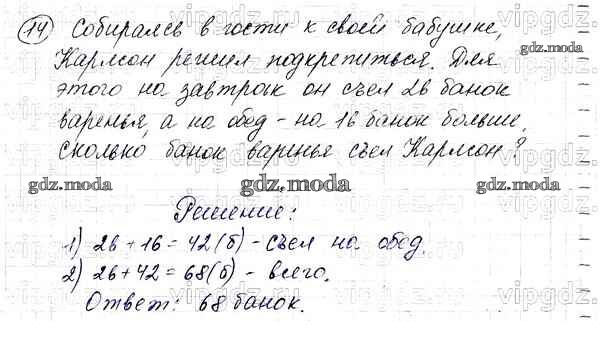 14 Собираясь в гости к своей бабушке,
Карлсон решил подкрепиться. Для
этого на завтрак он съел 26 банок
варенья, а на обед - на 16 банок больше,
Сколько банок варенья съел Карлсон?
Решение:
1) 26 + 16 = 42 (б) - съел на обед.
2) 26 + 42 = 68 (б) - всего.
Ответ: 68 банок.
gdz.moda
gdz.moda
gdz.moda
gdz.moda
gdz.moda
gdz.moda
vipgdz.
vipgdz.
vipgdz.